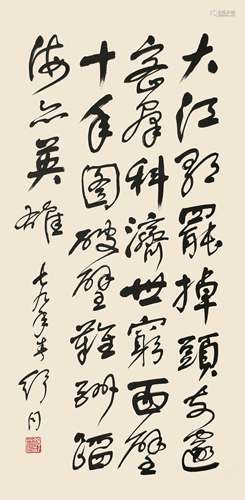 大江歌罷掉頭東邃
密群科濟世窮面壁
十年圖破壁難酬蹈
海亦英雄
七九年春 舒同